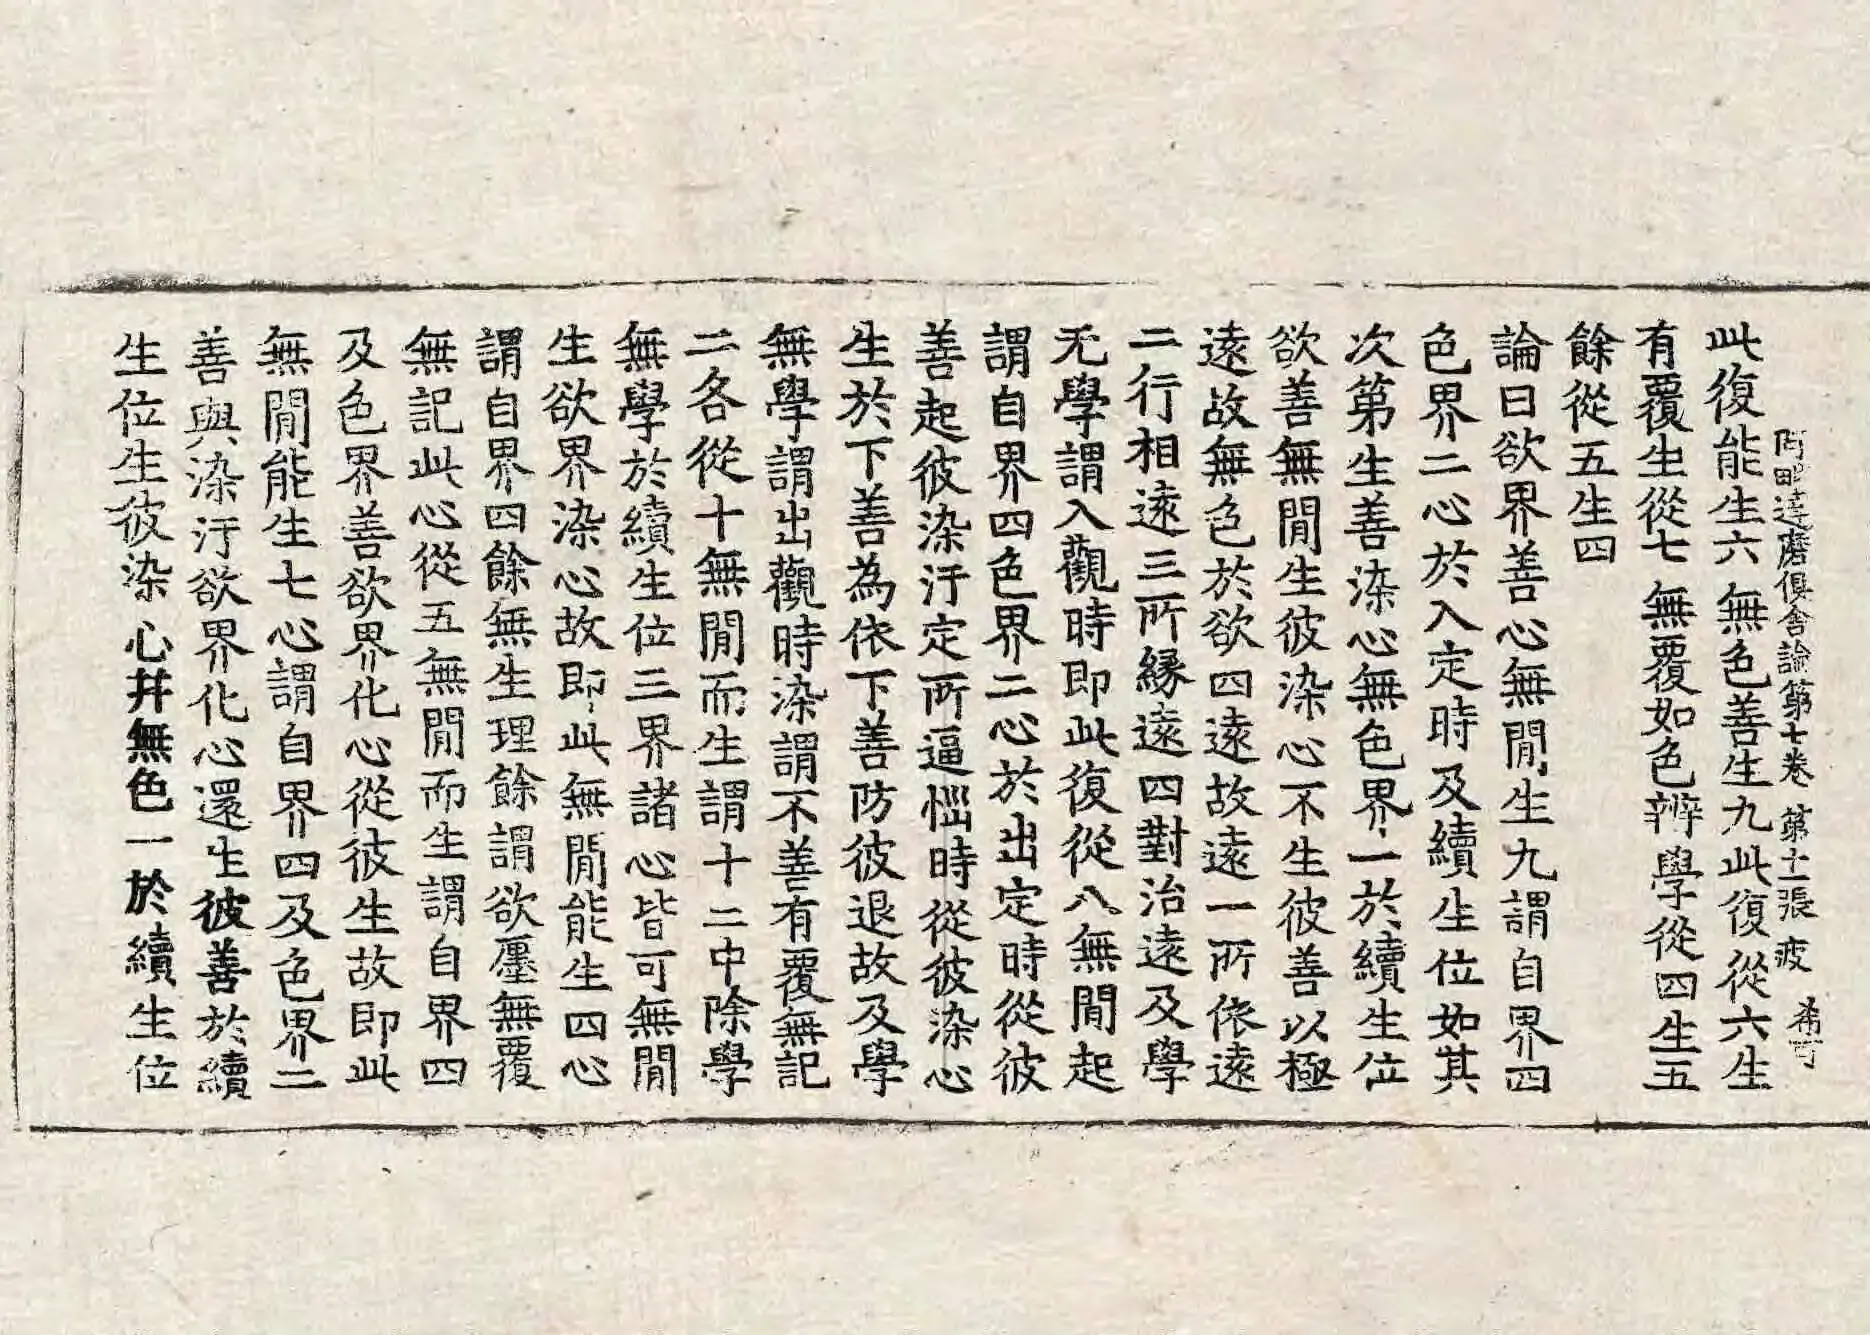 阿毗達磨俱舍論第七卷 第十一張 疲 希可
此復能生六 無色善生九此復從六生
有覆生從七 無覆如色辨學從四生五
餘從五生四
論曰欲界善心無閒生九謂自界四
色界二心於入定時及續生位如其
次第生善染心無色界一於續生位
欲善無閒生彼染心不生彼善以極
遠故無色於欲四遠故遠一所依遠
二行相遠三所緣遠四對治遠及學
无學謂入觀時即此復從八無閒起
謂自界四色界二心於出定時從彼
善起彼染汙定所逼惱時從彼染心
生於下善為依下善防彼退故及學
無學謂出觀時染謂不善有覆無記
二各從十無閒而生謂十二中除學
無學於續生位三界諸心皆可無閒
生欲界染心故即此無閒能生四心
謂自界四餘無生理餘謂欲纏無覆
無記此心從五無閒而生謂自界四
及色界善欲界化心從彼生故即此
無閒能生七心謂自界四及色界二
善與染汙欲界化心還生彼善於續
生位生彼染心幷無色一於續生位